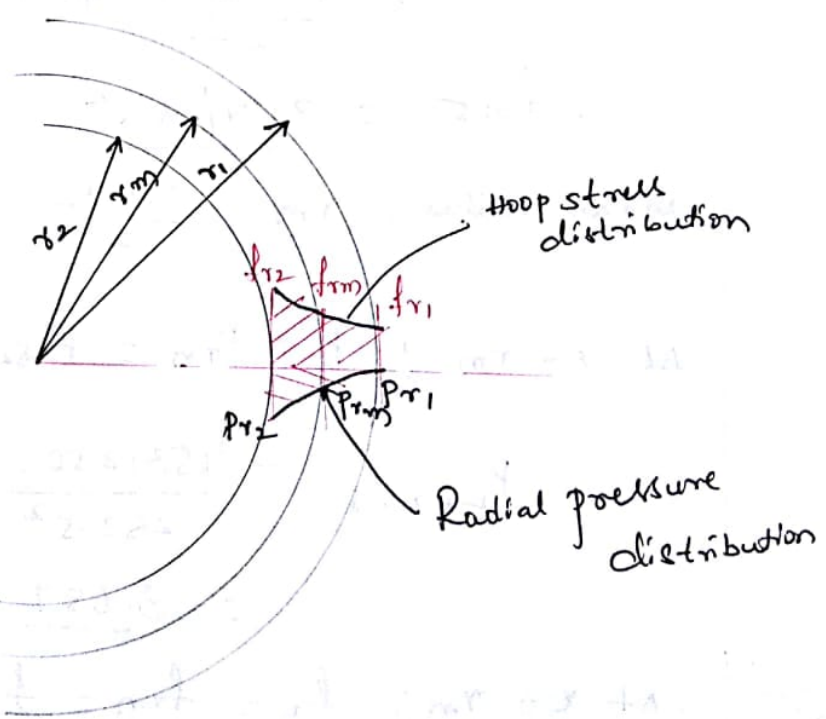 r2
rm
r1
Hoop stress
distribution
fr2
frm
fr1
Pr2
Prm
Pr1
Radial pressure
distribution